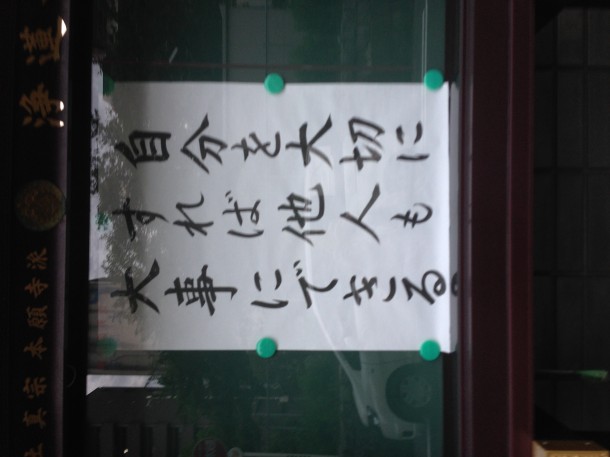 自分を大切に
すれば他人も
大事にできる
真宗本願寺派
浄